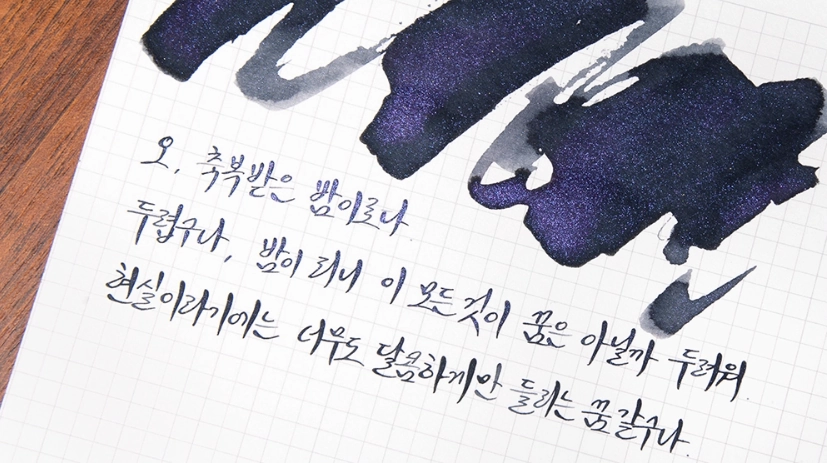 오, 축복받은 밤이로나
두렵구나, 밤이 되니 이 모든것이 꿈은 아닐까 두려워
현실이라기에는 너무도 달콤하기만 들리는 꿈같구나.